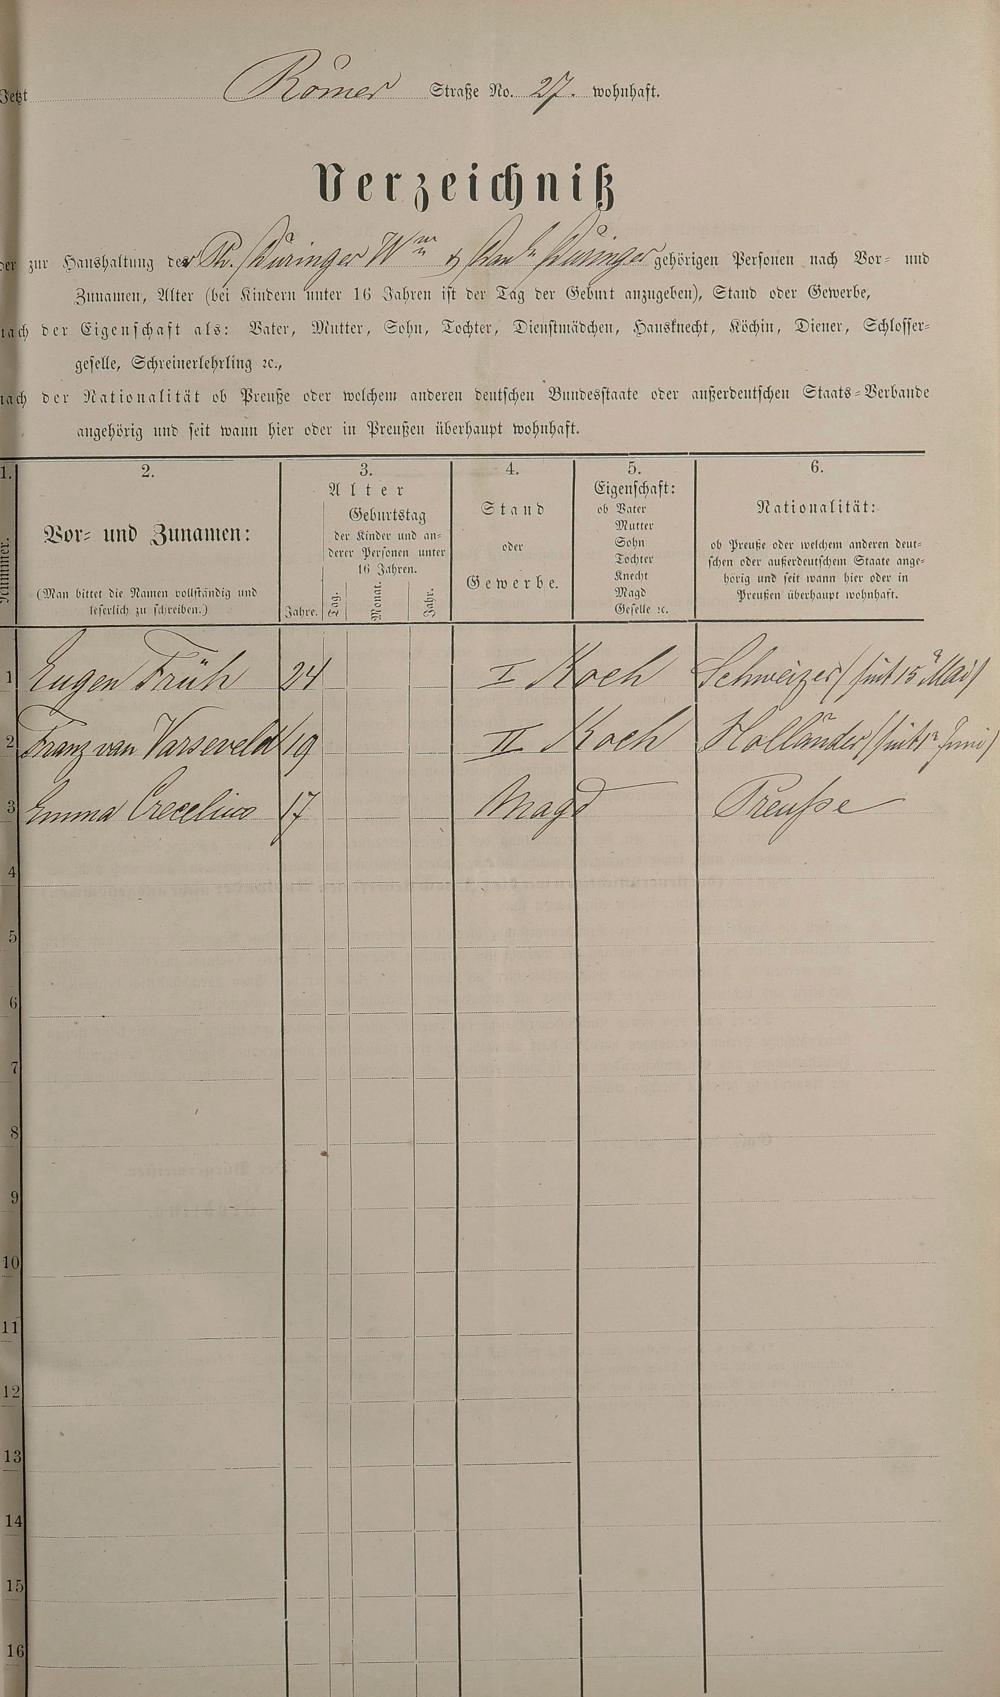 Jetzt Römer Straße No. 27. wohnhaft.
Verzeichniß
der zur Haushaltung der Ph. Düringer Wwe & gehörigen Personen nach Vor- und
Zunamen, Alter (bei Kindern unter 16 Jahren ist der Tag der Geburt anzugeben), Stand oder Gewerbe,
nach der Eigenschaft als: Vater, Mutter, Sohn, Tochter, Dienstmädchen, Hausknecht, Köchin, Diener, Schlosser-
geselle, Schreinerlehrling ꝛc.,
nach der Nationalität ob Preuße oder welchem anderen deutschen Bundesstaate oder außerdeutschen Staats-Verbande
angehörig und seit wann hier oder in Preußen überhaupt wohnhaft.
1. 2. 3. 4. 5. 6.
Nummer.
Vor- und Zunamen:
(Man bittet die Namen vollständig und
leserlich zu schreiben.)
Alter
Geburtstag
der Kinder und an-
derer Personen unter
16 Jahren.
Jahre. Tag. Monat. Jahr.
Stand
oder
Gewerbe.
Eigenschaft:
ob Vater
Mutter
Sohn
Tochter
Knecht
Magd
Geselle ꝛc.
Nationalität:
ob Preuße oder welchem anderen deut-
schen oder außerdeutschem Staate ange-
hörig und seit wann hier oder in
Preußen überhaupt wohnhaft.
1 Eugen Früh 24 I Koch Schweizer (seit 15n Mai)
2 Franz van Varseveld 19 II Koch Holländer (seit 1n Juni)
3 Emma Crecelius 17 Magd Preuße
4
5
6
7
8
9
10
11
12
13
14
15
16